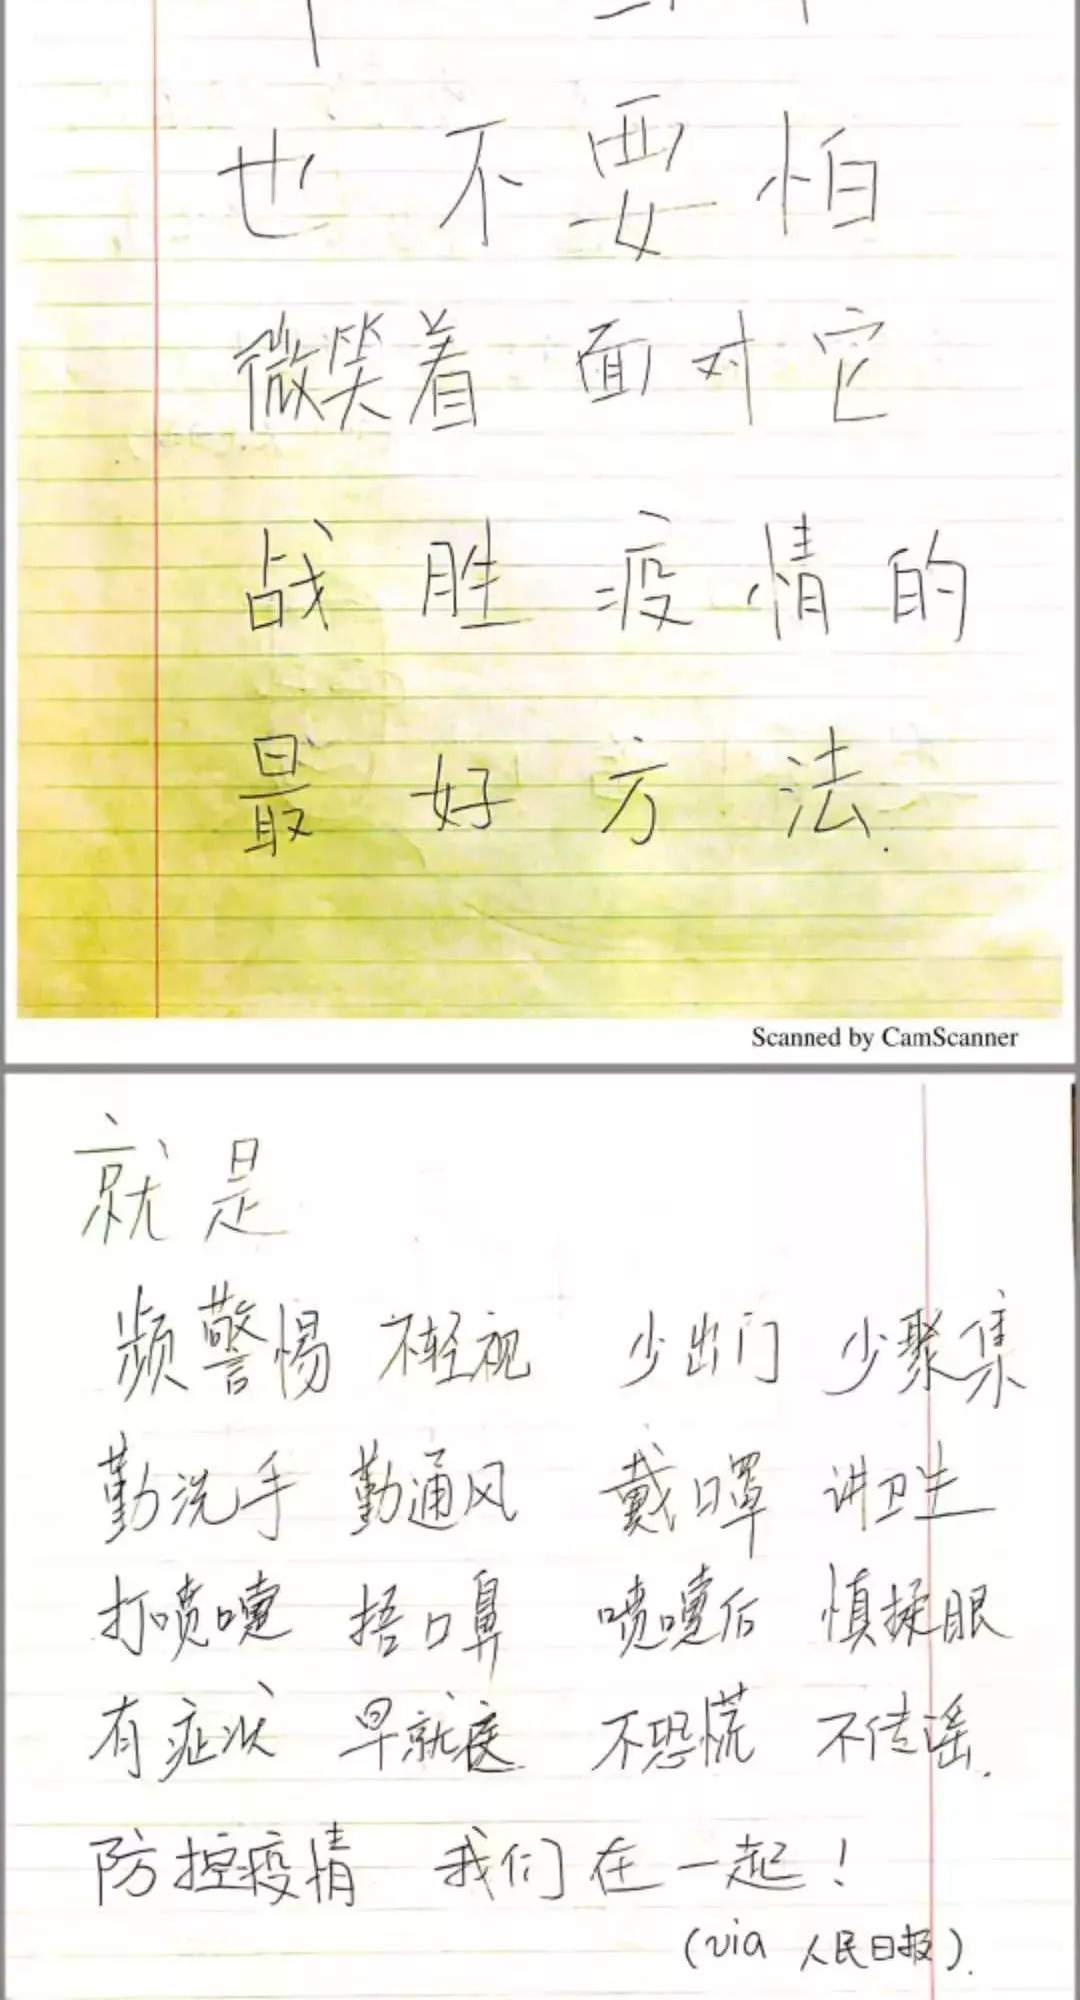 也不要怕
微笑着面对它
战胜疫情的
最好方法.
Scanned by CamScanner
就是
频警惕 不轻视 少出门 少聚集
勤洗手 勤通风 戴口罩 讲卫生
打喷嚏 捂口鼻 喷嚏后 慎揉眼
有症状 早就医 不恐慌 不传谣.
防控疫情 我们在一起!
(via 人民日报).